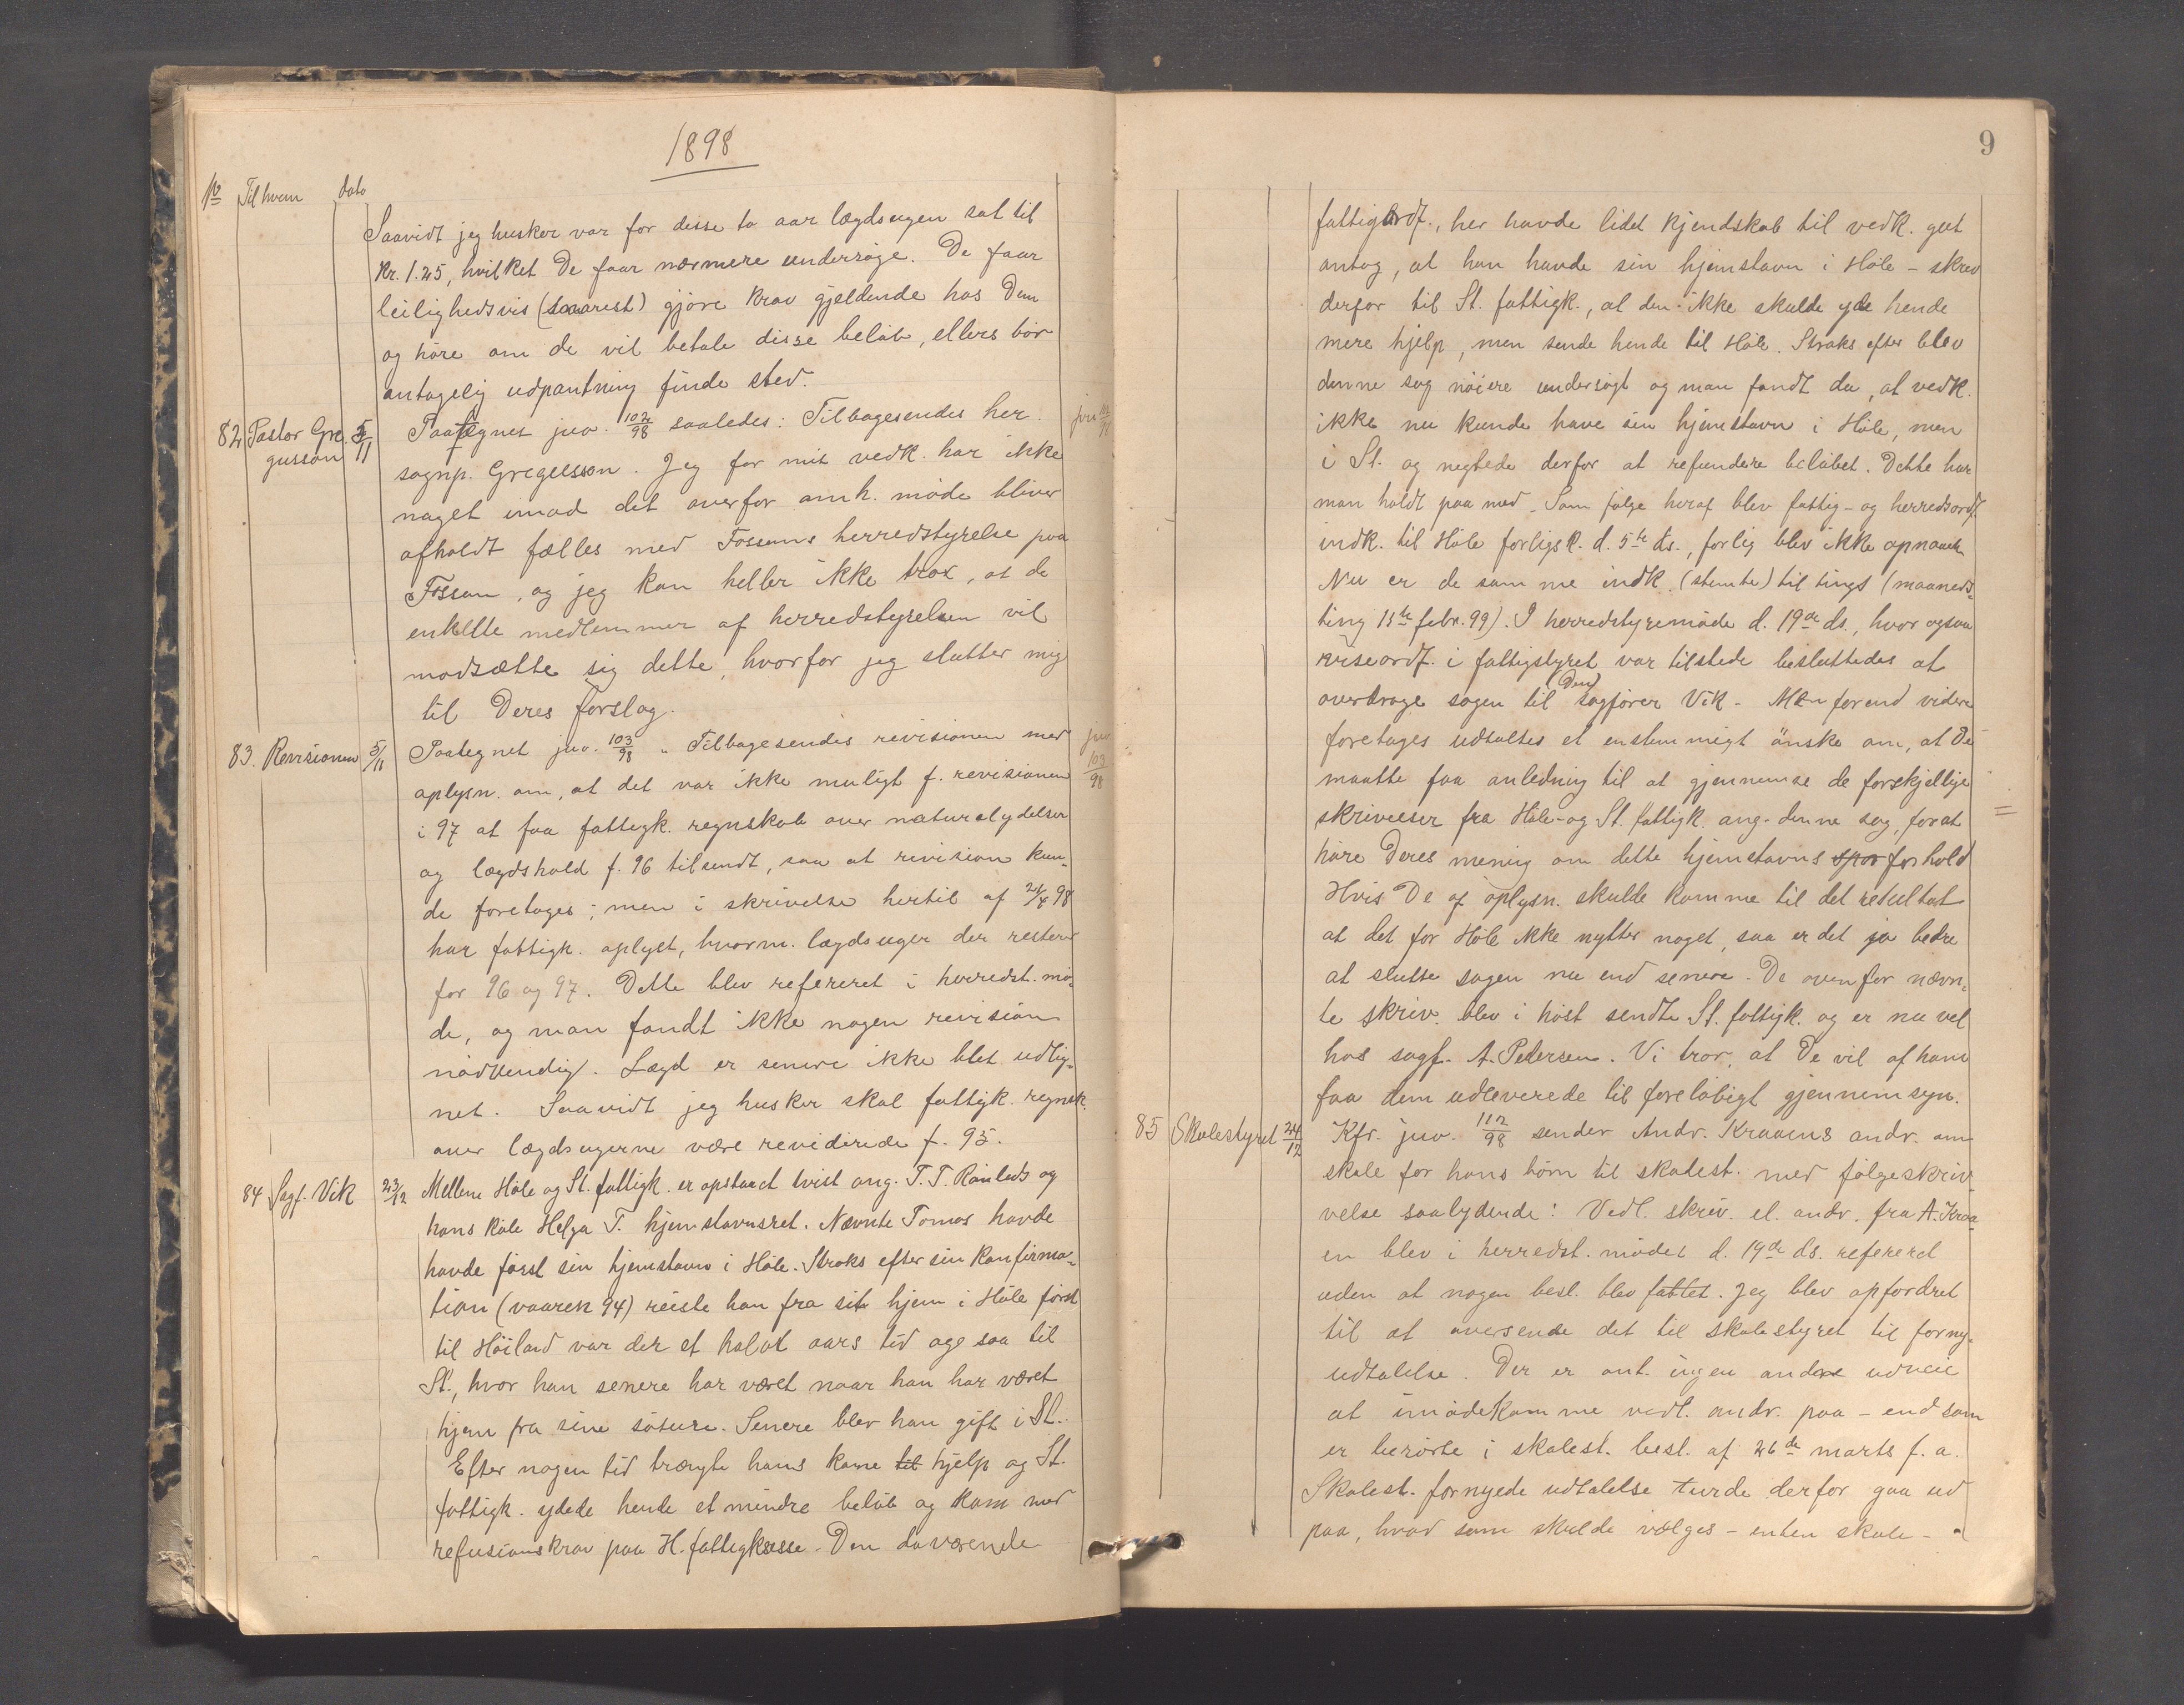 1898
No Til hvem dato
Saavidt jeg husker var for disse to aar lægdsugen sat til
kr. 1.25, hvilket De faar nærmere undersøge. De faar
leilighedsvis (snarest) gjøre krav gjeldende hos dem
og høre om de vil betale disse beløb, ellers bør
antagelig udpantning finde sted.
82 Pastor Gre- 5/11 Paategnet jnv. 102/98 saaledes: Tilbagesendes her. jnv
gusson sognp. Gregusson. Jeg for mit vedk. har ikke
noget imod det overfor omh. møde bliver
afholdt fælles med Fossans herredstyrelse paa
Fossan, og jeg kan heller ikke tro, at de
enkelte medlemmer af herredstyrelsen vil
modsætte sig dette, hvorfor jeg slutter mig
til Deres forslag.
83. Revisionen 5/11 Paategnet jnv. 103/98 „ Tilbagesendes revisionen med jnv 103/98
oplysn. om, at det var ikke muligt f. revisionen
i 97 at faa fattigk. regnskab over naturalydelser
og lægdshold f. 96 tilsendt, saa at revision kun-
de foretages; men i skrivelse hertil af 24/4 98
har fattigk. oplyst, hvorm. lægdsuger der resterer
for 96 og 97. Dette blev refereret i herredst. mø-
de, og man fandt ikke nogen revision
nødvendig. Lægd er senere ikke blet udlig-
net. Saavidt jeg husker skal fattigk. regnsk.
over lægdsugerne være reviderede f. 95.
84 Sagf. Vik 23/12 Mellem Høle og St. fattigk. er opstaaet tvist ang. T. T. Rønlids og
hans kone Helga T. hjemstavnsret. Nævnte Tomas havde
havde først sin hjemstavn i Høle. Straks efter sin konfirma-
tion (vaaren 94) reiste han fra sit hjem i Høle først
til Høiland var der et halvt aars tid og saa til
St., hvor han senere har været naar han har været
hjem fra sine søture. Senere blev han gift i St..
Efter nogen tid trængte hans kone til hjelp og St.
fattigk. ydede hende et mindre beløb og kom med
refusionskrav paa H. fattigkasse. Den daværende
9
fattigordf., her havde lidet kjendskab til vedk. gut
antog, at han havde sin hjemstavn i Høle - skrev
derfor til St. fattigk., at den ikke skulde yde hende
mere hjelp, men sende hende til Høle. Straks efter blev
denne sag nøiere undersøgt og man fandt da, at vedk.
ikke nu kunde have sin hjemstavn i Høle, men
i St. og negtede derfor at refundere beløbet. Dette har
man holdt paa med. Som følge heraf blev fattig- og herredsordf.
indk. til Høle forligsk. d. 5te ds., forlig blev ikke opnaaet.
Nu er de samme indk. (stemte) til tings (maaneds-
ting 13te febr. 99). I herredstyremøde d. 19de ds., hvor ogsaa
viseordf. i fattigstyret var tilstede besluttedes at
overdrage sagen til Dem sagfører Vik - Men forend videre
foretages udtaltes et enstemmigt ønske om, at De
maatte faa anledning til at gjennemse de forskjellige
skrivelser fra Høle- og St. fattigk. ang. denne sag, forat =
høre Deres mening om dette hjemstavns spor forhold
Hvis De af oplysn. skulde komme til det resultat
at det for Høle ikke nytter noget, saa er det jo bedre
at slutte sagen nu end senere. De ovenfor nævn-
te skriv. blev i høst sendte St. fattigk. og er nu vel
hos sagf. A. Pedersen. Vi tror, at De vil af ham
faa dem udleverede til foreløbigt gjennemsyn.
85 Skolestyret 24/12 Kfr. jnv. 112/98 sender Andr. Kraaens andr. om
skole for hans børn til skolest. med følgeskriv-
velse saalydende: Vedl. skriv. el. andr. fra A. Kraa-
en blev i herredst. mødet d. 19de ds. refereret
uden at nogen besl. blev fattet. Jeg blev opfordret
til at oversende det til skolestyret til forny-
udtalelse. Der er ant. ingen anden udveie
at imødekomme vedl. andr. paa - end som
er berørte i skolest. besl. af 26de marts f. a.
Skolest. fornyede udtalelse turde derfor gaa ud
paa, hvad som skulde vælges - enten skole -